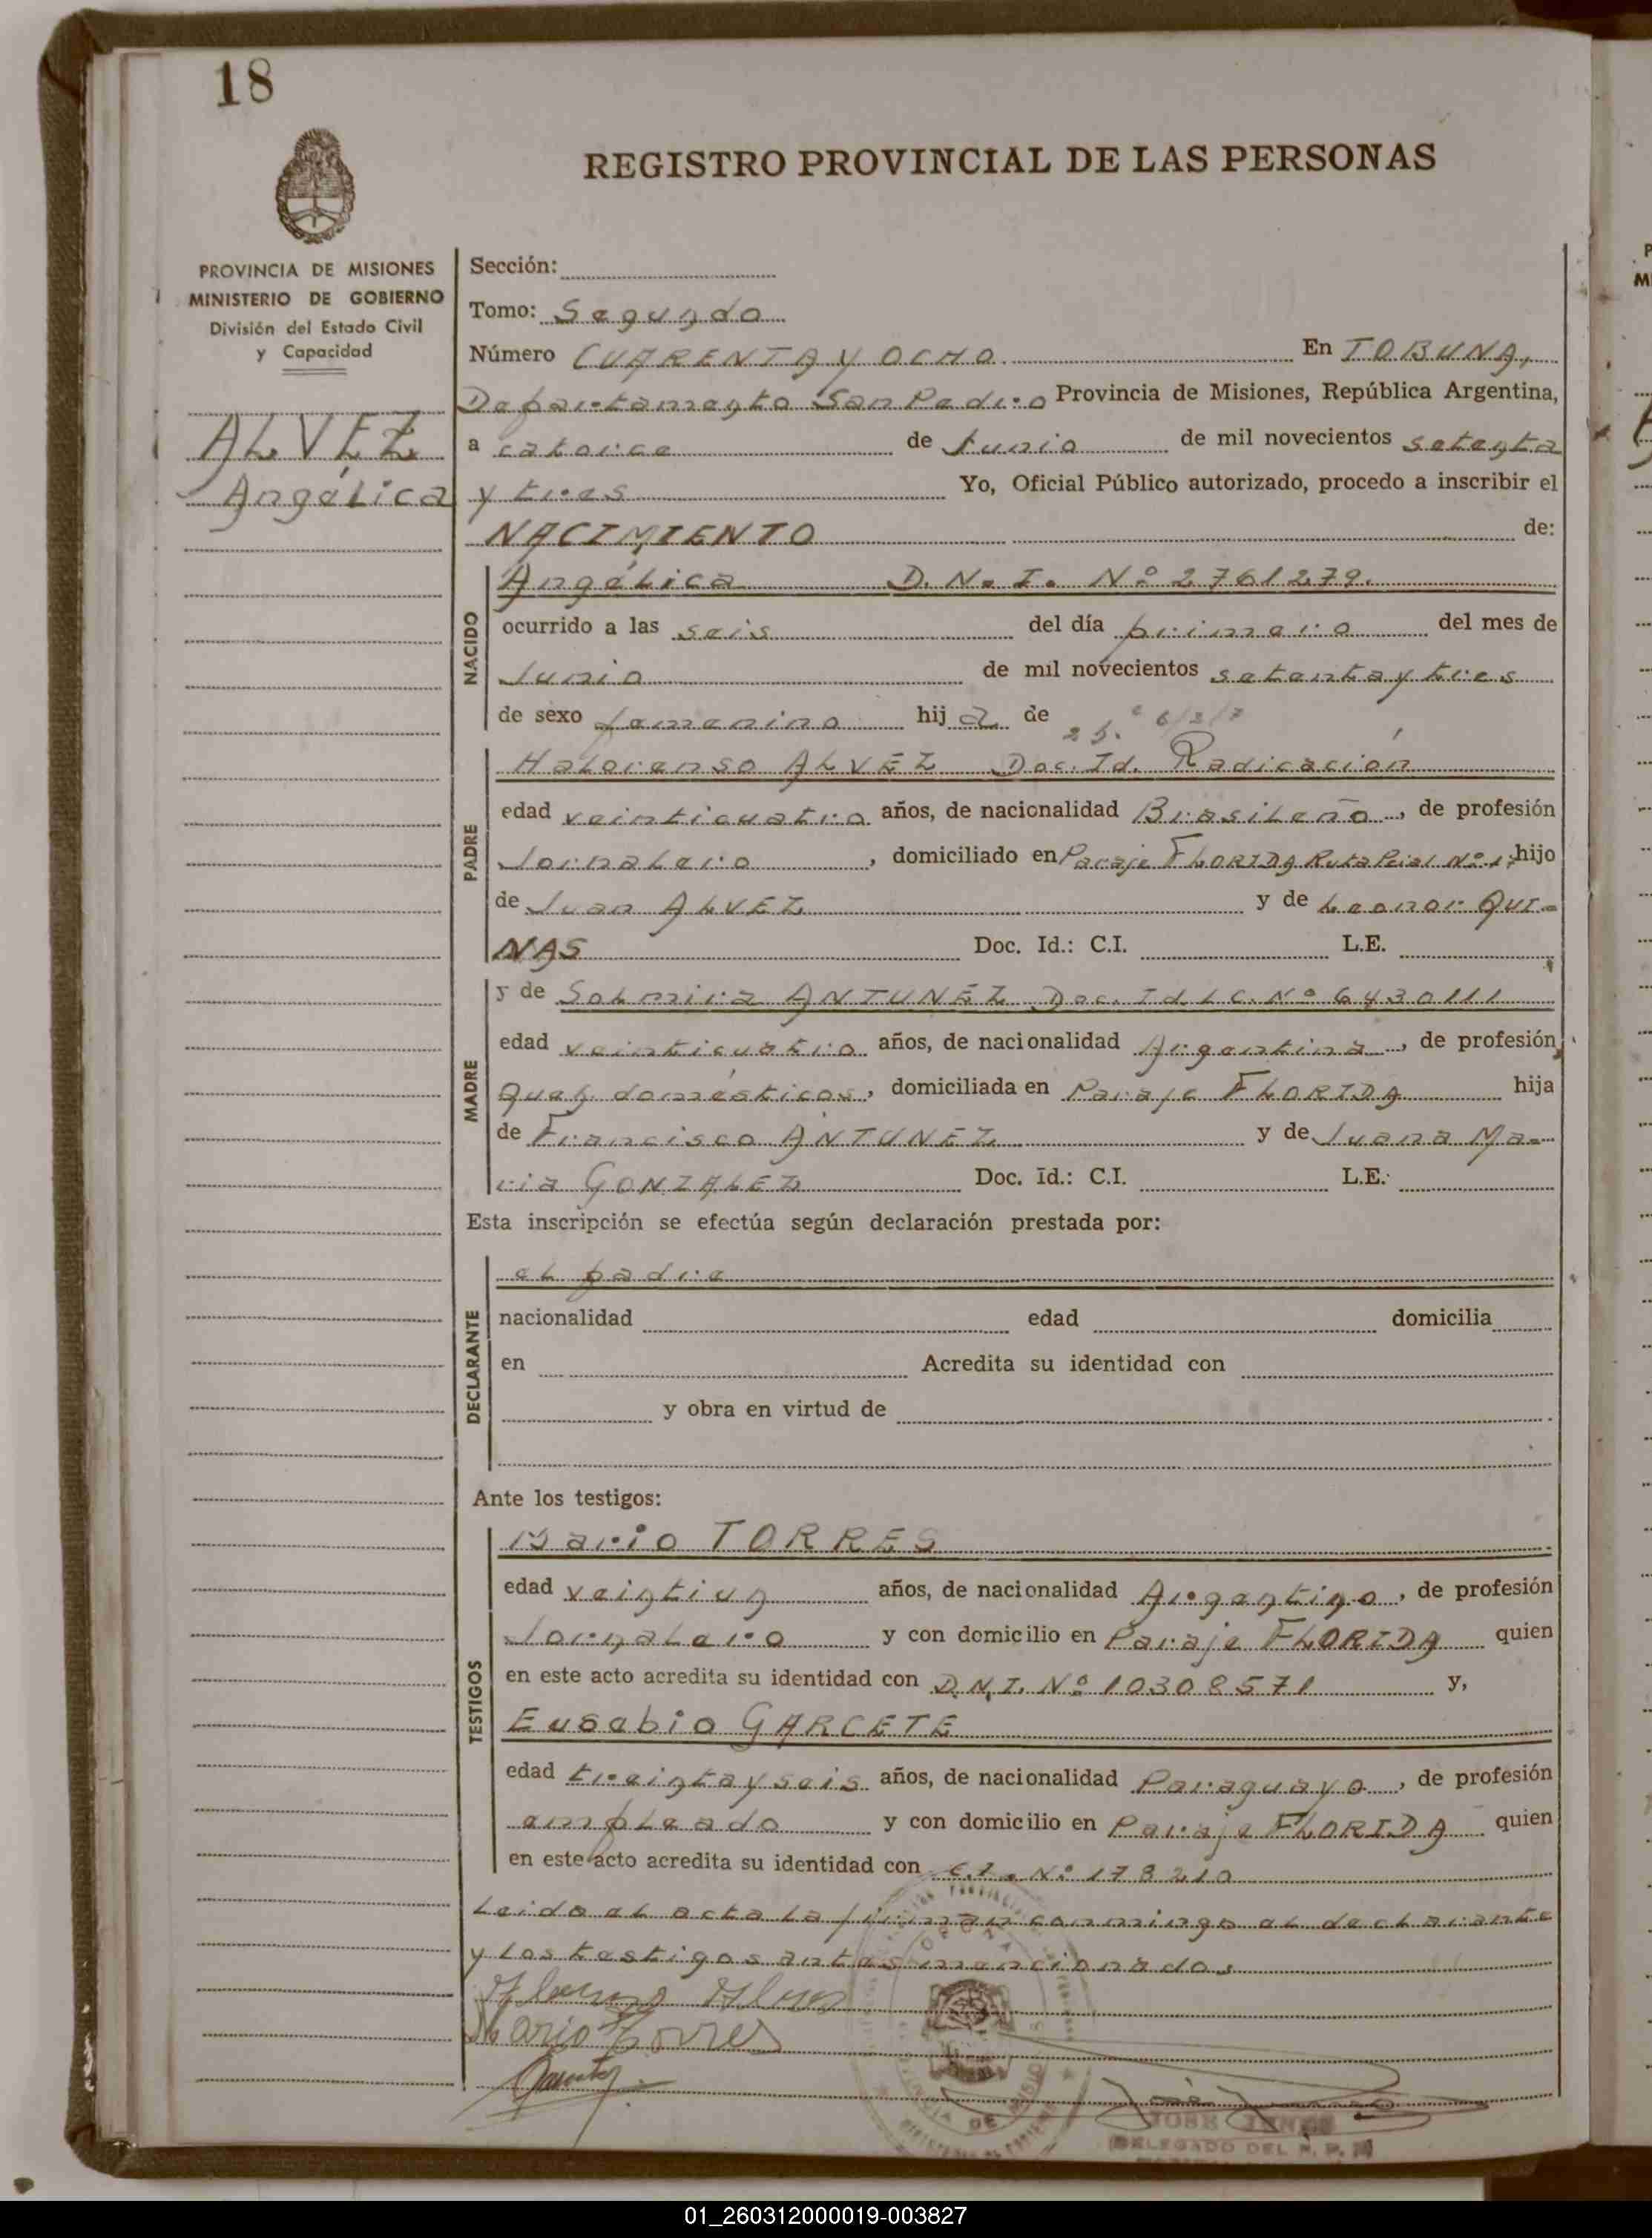 18
REGISTRO PROVINCIAL DE LAS PERSONAS
PROVINCIA DE MISIONES
MINISTERIO DE GOBIERNO
División del Estado Civil
y Capacidad
ALVEZ
Angélica
Sección:
Tomo: Segundo
Número CUARENTA Y OCHO En TOBUNA,
Departamento San Pedro Provincia de Misiones, República Argentina,
a catorce de Junio de mil novecientos setenta
y tres Yo, Oficial Público autorizado, procedo a inscribir el
NACIMIENTO de:
NACIDO
Angélica D. N. I. Nº 2761279.
ocurrido a las seis del día primero del mes de
Junio de mil novecientos setenta y tres
de sexo femenino hija de
PADRE
Halorenso ALVEZ Doc. Id. Radicación
edad veinticuatro años, de nacionalidad Brasileño, de profesión
Jornalero, domiciliado en Paraje FLORIDA Ruta Pcial Nº 1; hijo
de Juan ALVEZ y de Leonor QUI-
NAS Doc. Id.: C.I. L.E.
MADRE
y de Solmira ANTUNEZ Doc. Id L C. Nº 6430111
edad veinticuatro años, de nacionalidad Argentina, de profesión
Queh. domésticos, domiciliada en Paraje FLORIDA hija
de Francisco ANTUNEZ y de Juana Ma-
ria GONZALEZ Doc. Id.: C.I. L.E.
Esta inscripción se efectúa según declaración prestada por:
DECLARANTE
el padre
nacionalidad edad domicilia
en Acredita su identidad con
y obra en virtud de
Ante los testigos:
TESTIGOS
Mario TORRES
edad veintiun años, de nacionalidad Argentino, de profesión
Jornalero y con domicilio en Paraje FLORIDA quien
en este acto acredita su identidad con D.N.I. Nº 10308571 y,
Eusebio GARCETE
edad treinta y seis años, de nacionalidad Paraguayo, de profesión
empleado y con domicilio en Paraje FLORIDA quien
en este acto acredita su identidad con C.I. Nº 178210
Leida el acta la firman conmingo el declarante
y los testigos antes mencionados
Mario Torres
JOSE
DELEGADO DEL R. P.
01_260312000019-003827